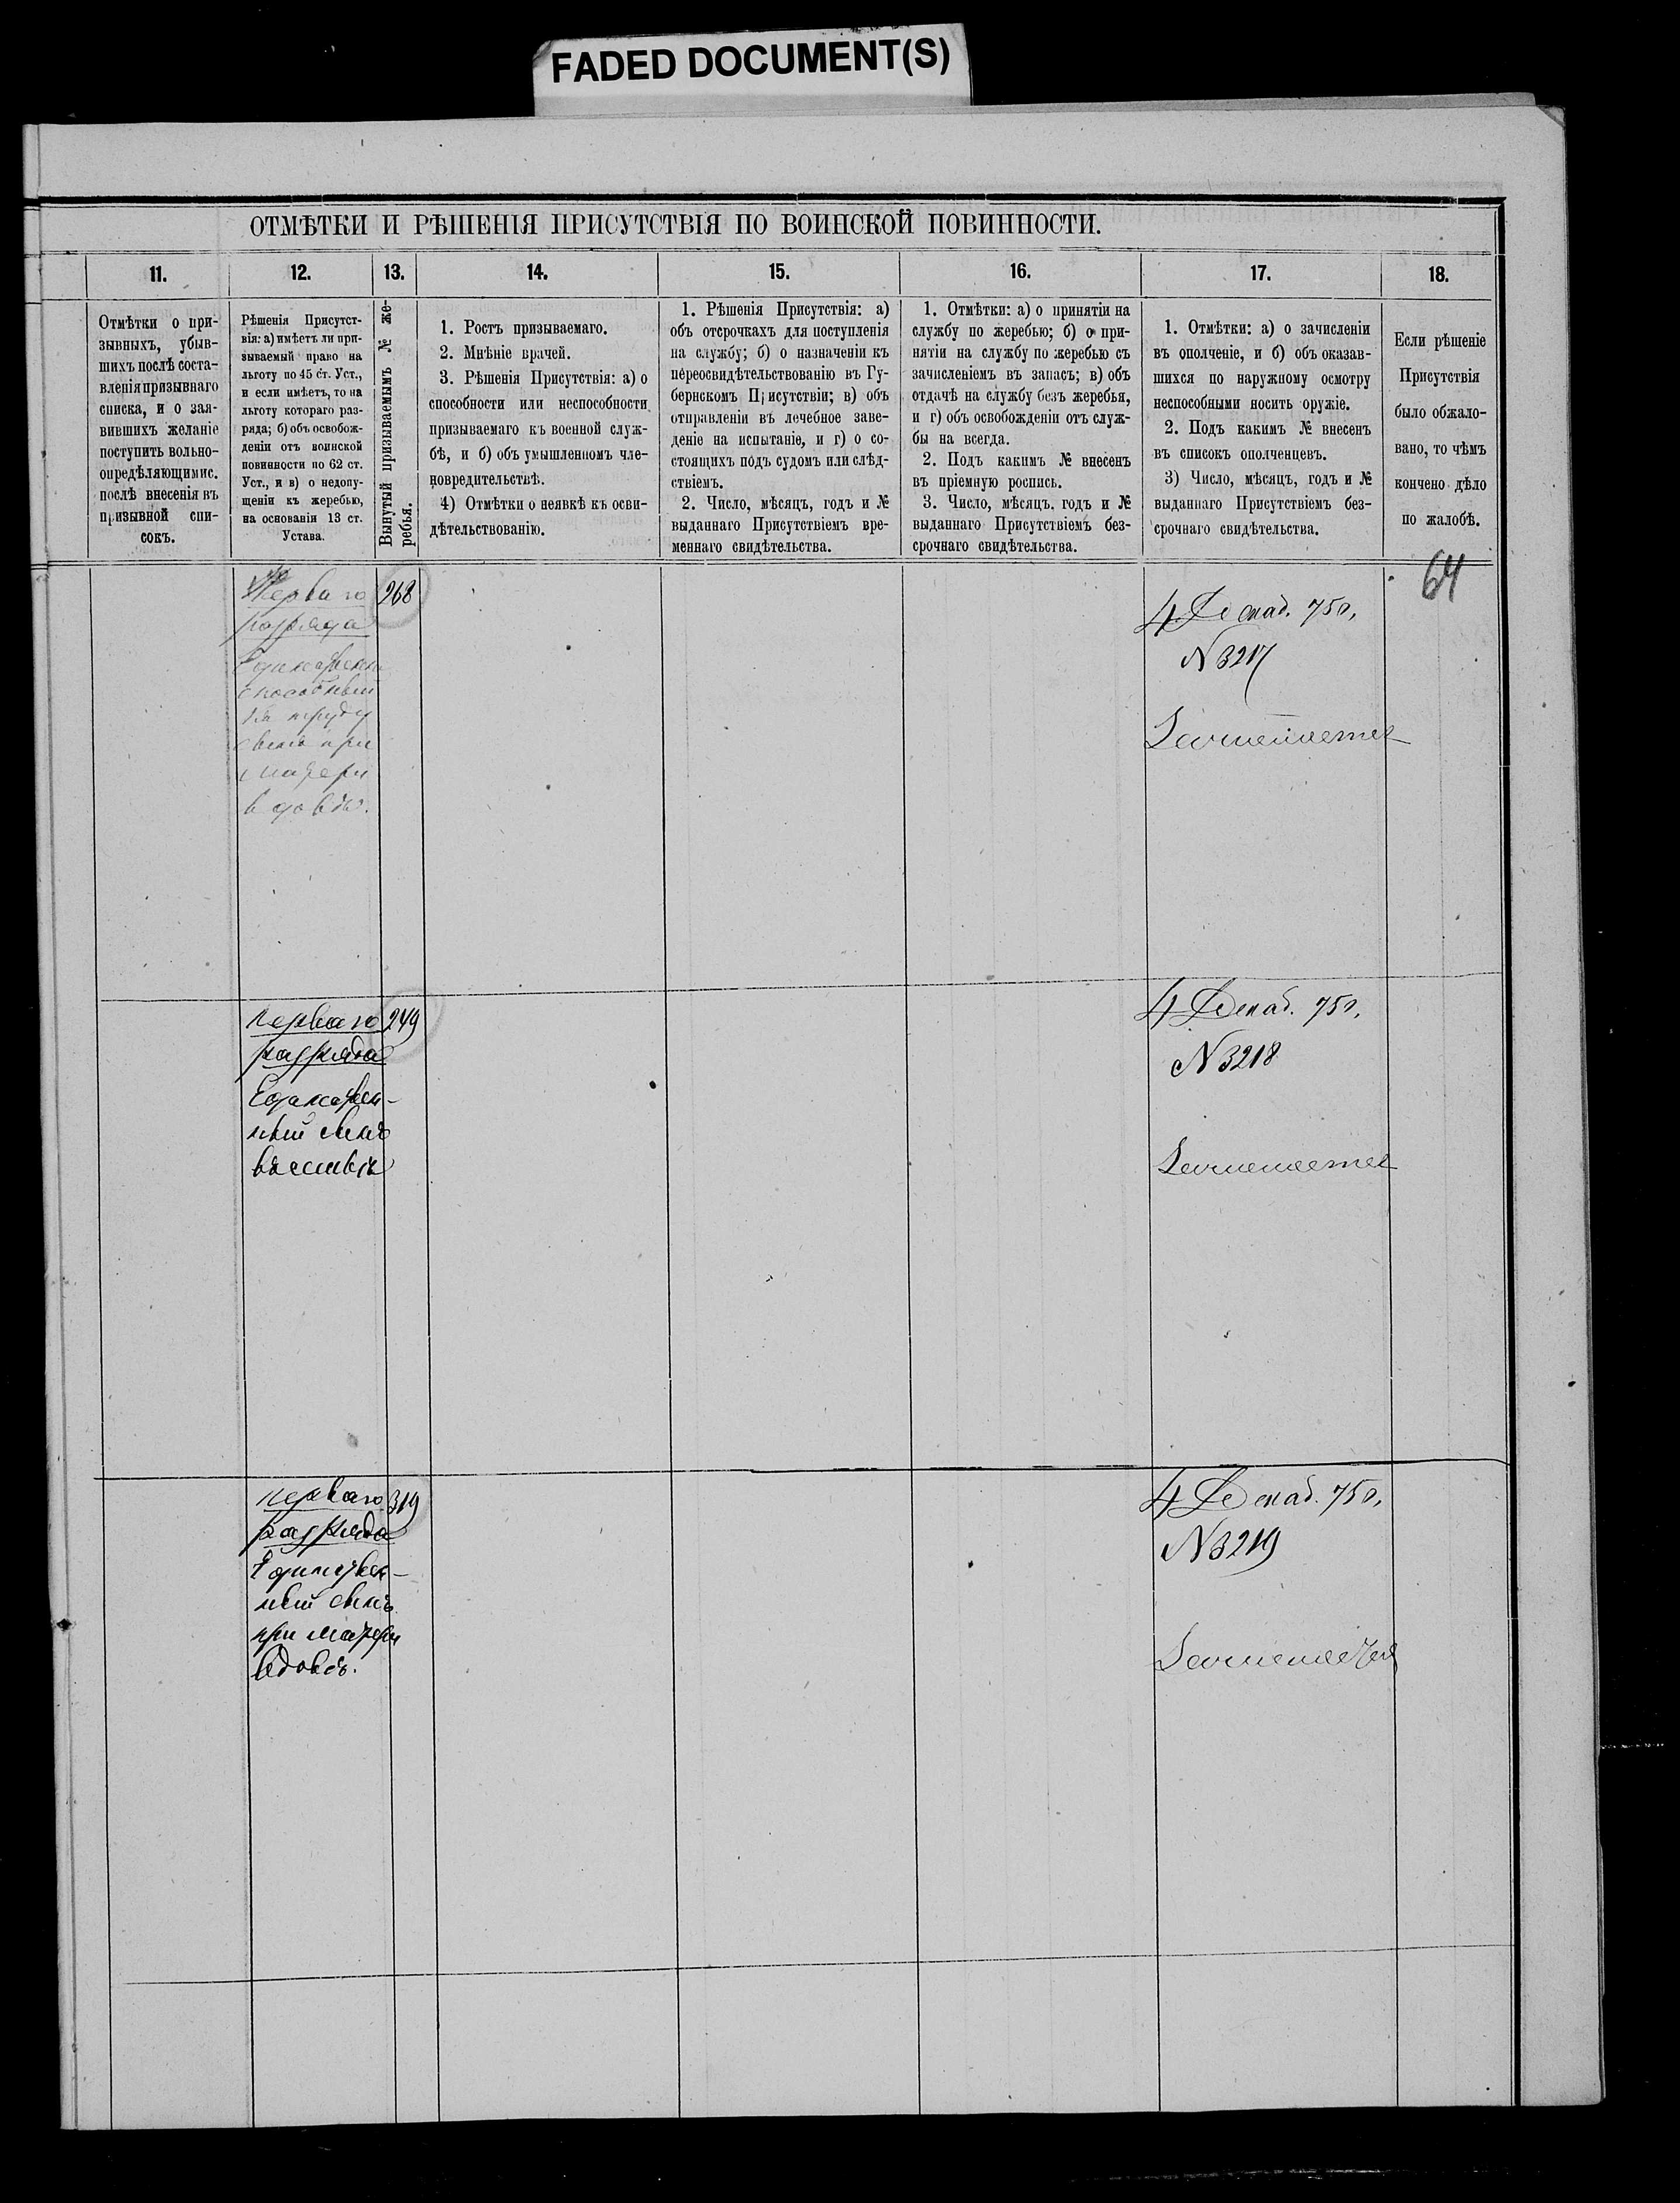 FADED DOCUMENT(S)
ОТМѢТКИ И РѢШЕНІЯ ПРИСУТСТВІЯ ПО ВОИНСКОЙ ПОВИННОСТИ.
11.
12.
13.
14.
15.
16.
17.
18.
Отмѣтки о при-
зывныхъ, убыв-
шихъ послѣ соста-
вленія призывнаго
списка, и о зая-
вившихъ желаніе
поступить вольно-
опредѣляющимис.
послѣ внесенія въ
призывной спи-
сокъ.
Рѣшенія Присутст-
вія: а) имѣетъ ли при-
зываемый право на
льготу по 45 ст. Уст.,
и если имѣетъ, то на
льготу котораго раз-
ряда; б) объ освобож-
деніи отъ воинской
повинности по 62 ст.
Уст., и в) о недопу-
щеніи къ жеребью,
на основаніи 13 ст.
Устава.
Вынутый призываемымъ № же-
ребья.
1. Ростъ призываемаго.
2. Мнѣніе врачей.
3. Рѣшенія Присутствія: а) о
способности или неспособности
призываемаго къ военной служ-
бѣ, и б) объ умышленномъ чле-
новредительствѣ.
4) Отмѣтки о неявкѣ къ осви-
дѣтельствованію.
1. Рѣшенія Присутствія: а)
объ отсрочкахъ для поступленія
на службу; б) о назначеніи къ
переосвидѣтельствованію въ Гу-
бернскомъ Присутствіи; в) объ
отправленіи въ лечебное заве-
деніе на испытаніе, и г) о со-
стоящихъ подъ судомъ или слѣд-
ствіемъ.
2. Число, мѣсяцъ, годъ и №
выданнаго Присутствіемъ вре-
меннаго свидѣтельства.
1. Отмѣтки: а) о принятіи на
службу по жеребью; б) о при-
нятіи на службу по жеребью съ
зачисленіемъ въ запасъ; в) объ
отдачѣ на службу безъ жеребья,
и г) объ освобожденіи отъ служ-
бы на всегда.
2. Подъ какимъ № внесенъ
въ пріемную роспись.
3. Число, мѣсяцъ, годъ и №
выданнаго Присутствіемъ без-
срочнаго свидѣтельства.
1. Отмѣтки: а) о зачисленіи
въ ополченіе, и б) объ оказав-
шихся по наружному осмотру
неспособными носить оружіе.
2. Подъ какимъ № внесенъ
въ списокъ ополченцевъ.
3) Число, мѣсяцъ, годъ и №
выданнаго Присутствіемъ без-
срочнаго свидѣтельства.
Если рѣшеніе
Присутствія
было обжало-
вано, то чѣмъ
кончено дѣло
по жалобѣ.
64
Перваго
разряда
Единствен
способный
къ труду
сынъ при
матери
вдовѣ.
268
4 Декаб. 75 г.
N 3217
Зачисляется
перваго
разряда
Единствен-
ный сынъ
въ семьѣ
249
4 Декаб. 75 г.
N 3218
Зачисляется
перваго
разряда
Единствен-
ный сынъ
при матери
вдовѣ.
319
4 Декаб. 75 г.
N 3219
Зачисляется